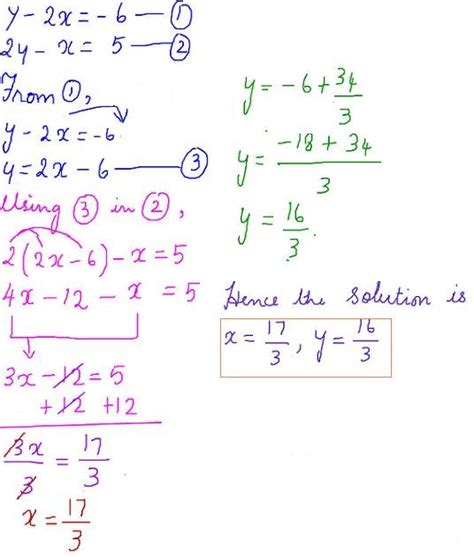 y - 2x = -6 — ①
2y - x = 5 — ②
From ①,
y - 2x = -6
y = 2x - 6 — ③
Using ③ in ②,
2(2x - 6) - x = 5
4x - 12 - x = 5
3x - 12 = 5
+12 +12
3x/3 = 17/3
x = 17/3
y = -6 + 34/3
y = (-18 + 34)/3
y = 16/3.
Hence the solution is
x = 17/3, y = 16/3